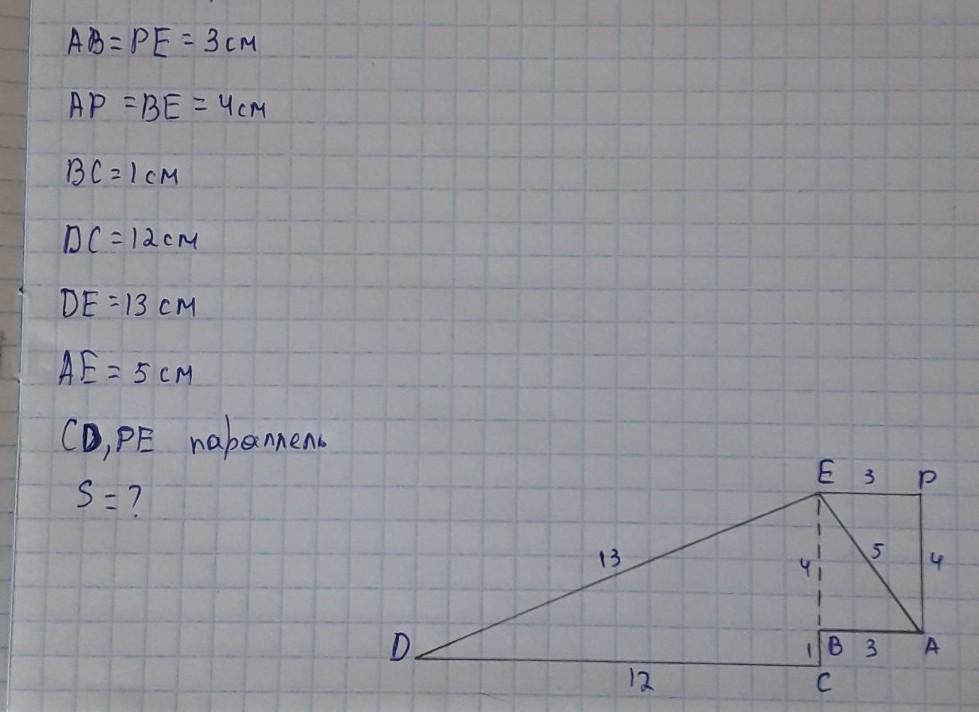 AB = PE = 3 см
AP = BE = 4 см
BC = 1 см
DC = 12 см
DE = 13 см
AE = 5 см
CD, PE параллель
S = ?
E 3 P
13 4 5 4
D 1 B 3 A
12 C